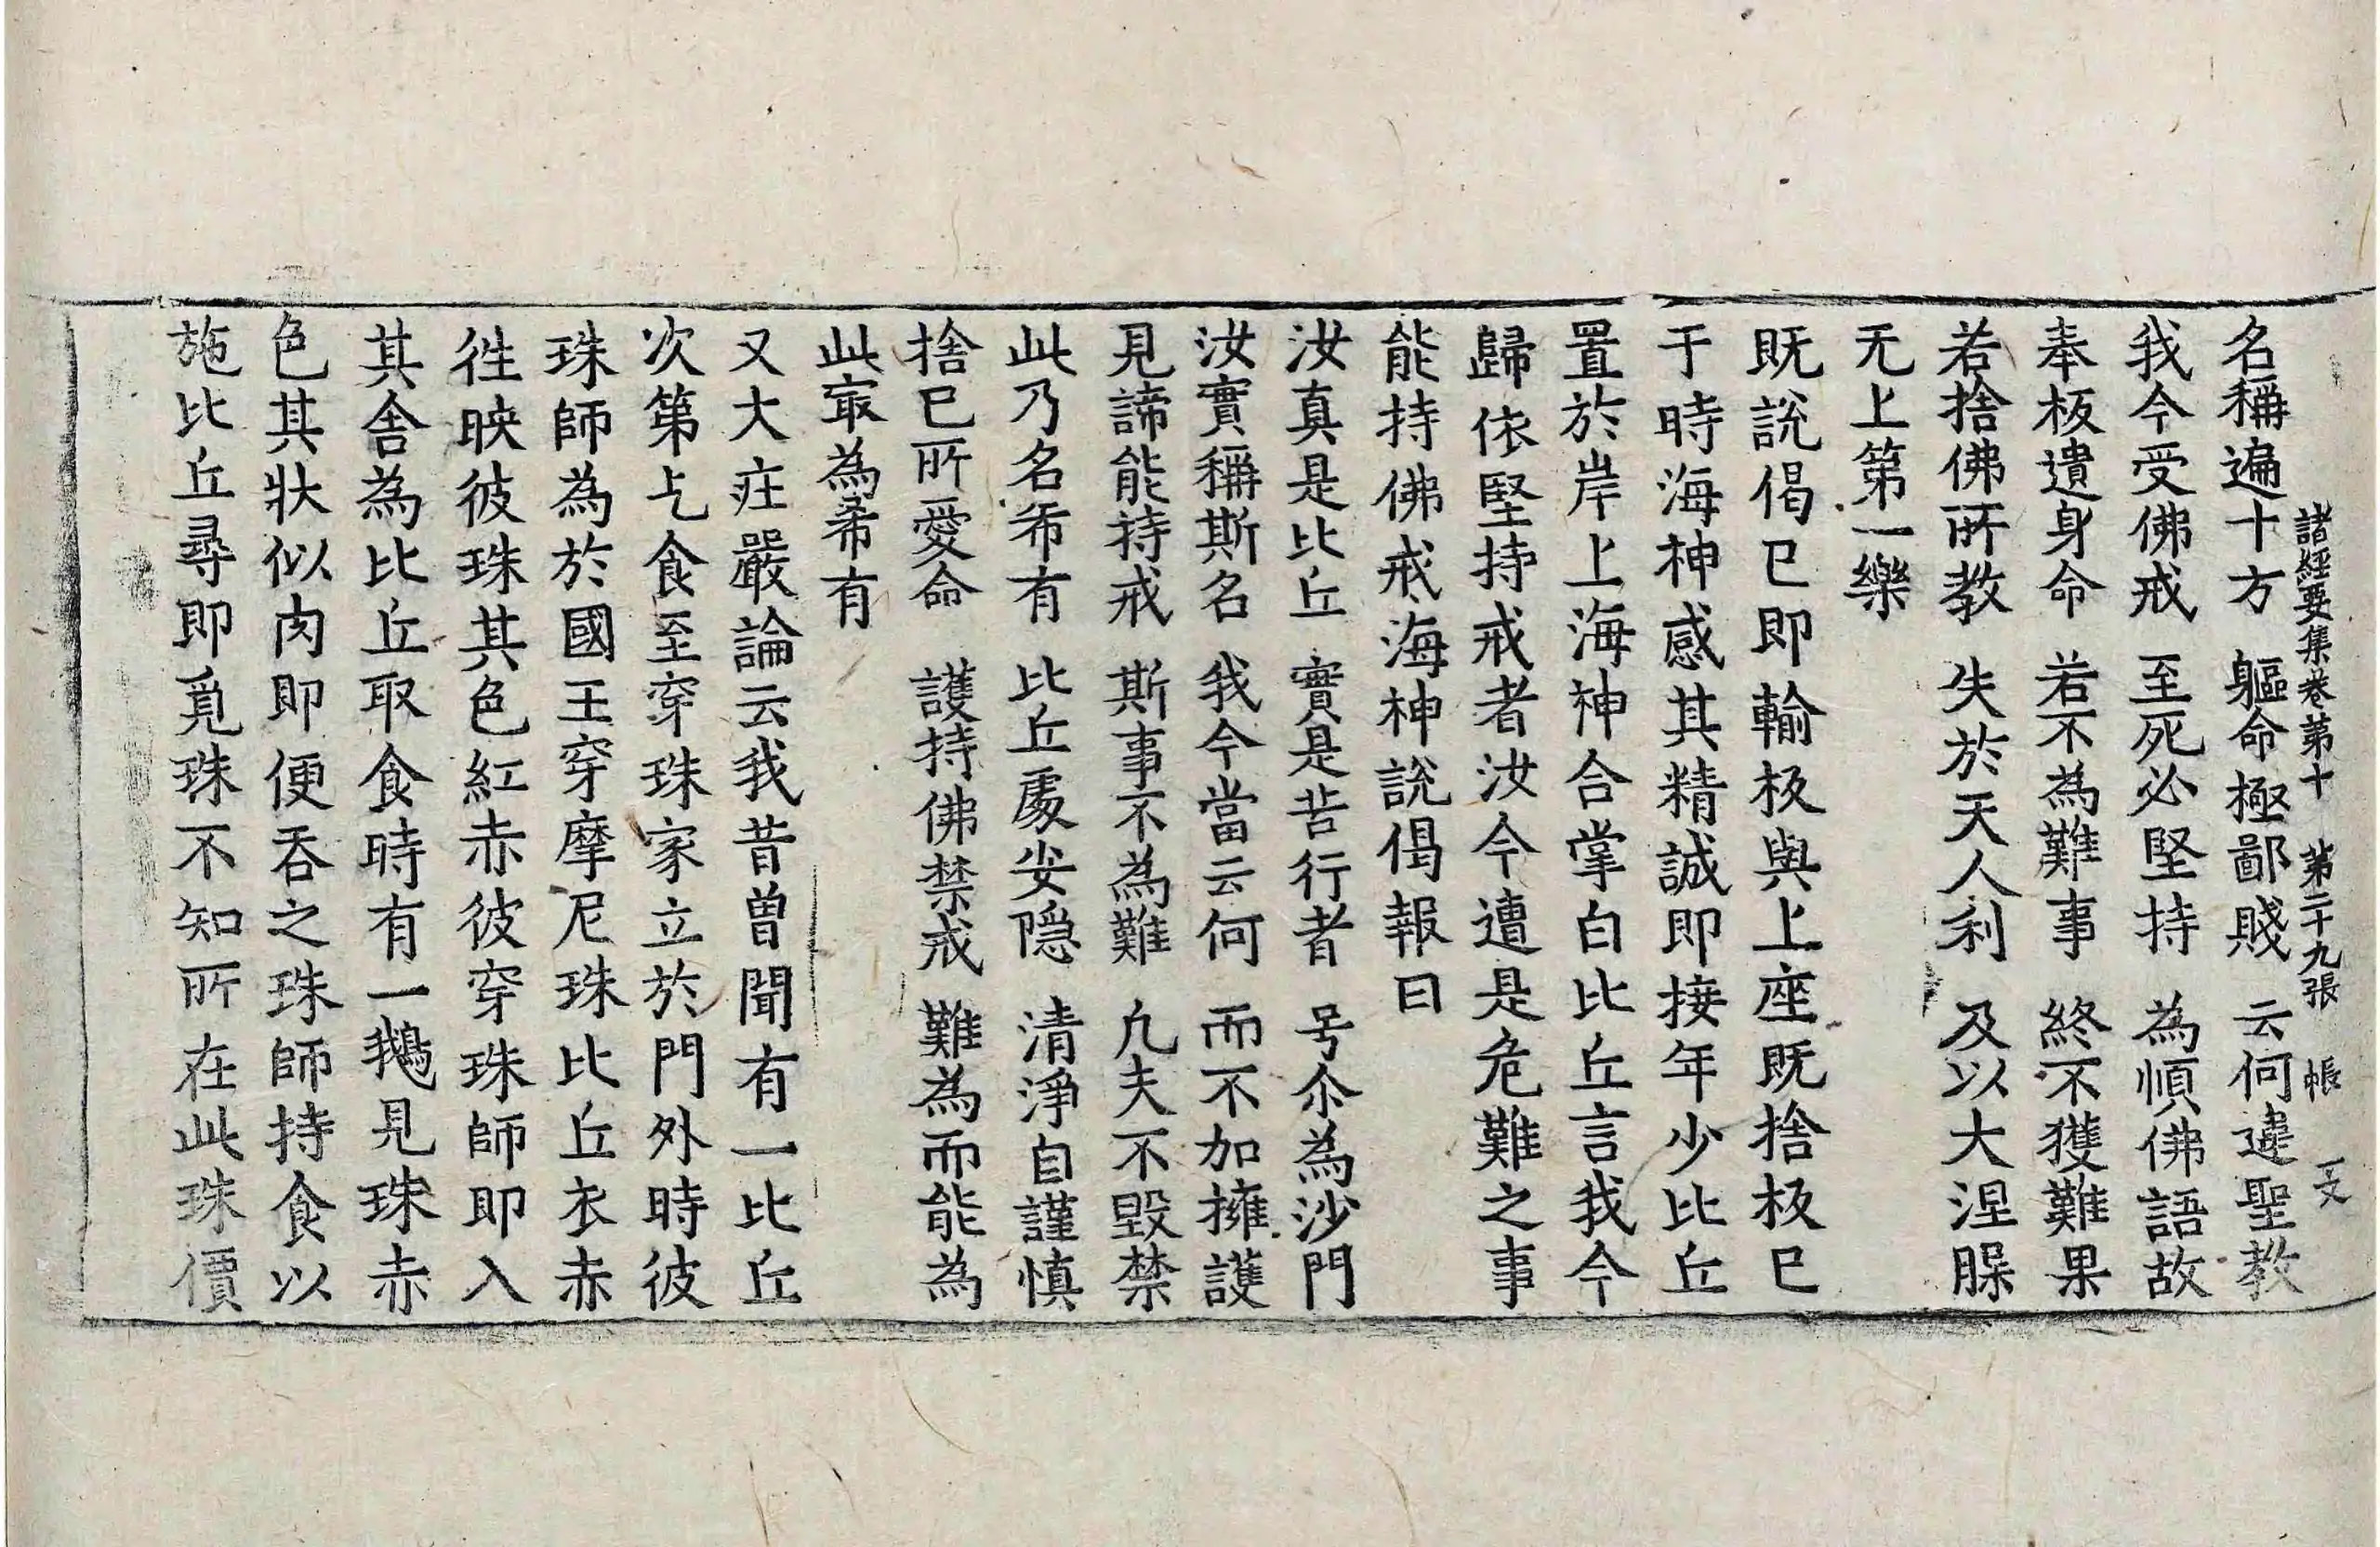 諸經要集卷第十 第二十九張 帳 一文
名稱遍十方 軀命極鄙賤 云何違聖教
我今受佛戒 至死必堅持 為順佛語故
奉板遺身命 若不為難事 終不獲難果
若捨佛所教 失於天人利 及以大涅腂
无上第一樂
既說偈已即輸板與上座既捨板已
于時海神感其精誠即接年少比丘
置於岸上海神合掌白比丘言我今
歸依堅持戒者汝今遭是危難之事
能持佛戒海神說偈報曰
汝真是比丘 實是苦行者 号尒為沙門
汝實稱斯名 我今當云何 而不加擁護
見諦能持戒 斯事不為難 凢夫不毀禁
此乃名希有 比丘處安隱 清淨自謹慎
捨已所愛命 護持佛禁戒 難為而能為
此㝡為希有
又大莊嚴論云我昔曾聞有一比丘
次第乞食至穿珠家立於門外時彼
珠師為於國王穿摩尼珠比丘衣赤
往映彼珠其色紅赤彼穿珠師即入
其舍為比丘取食時有一鵝見珠赤
色其狀似肉即便吞之珠師持食以
施比丘尋即覓珠不知所在此珠價